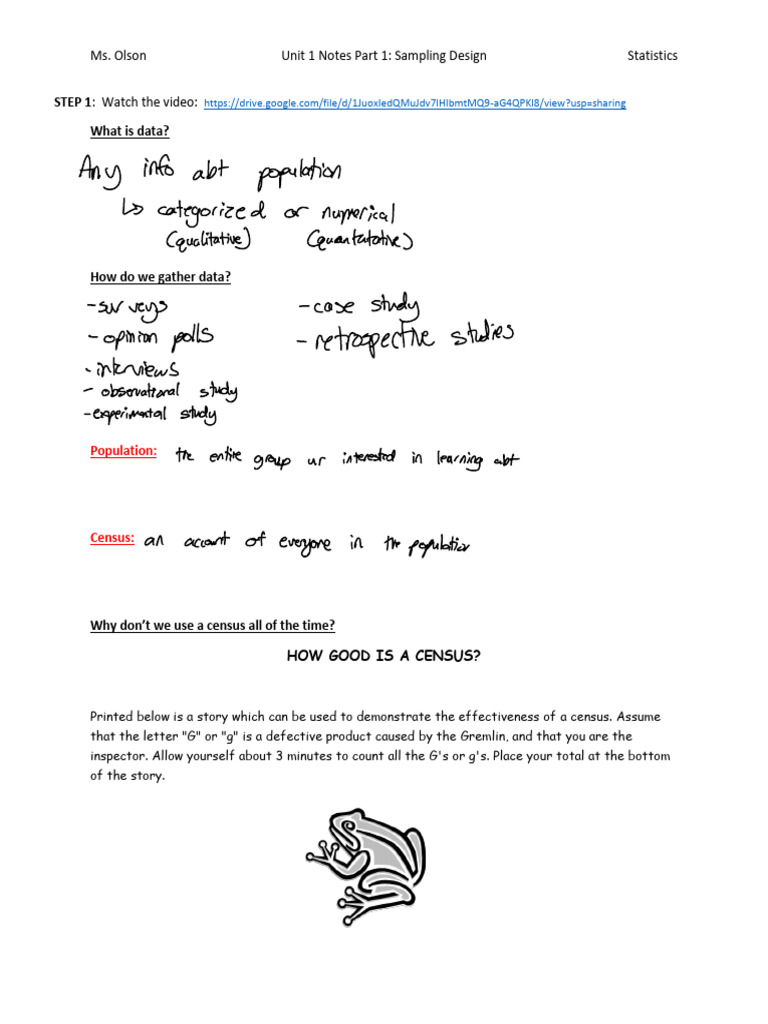 Ms. Olson Unit 1 Notes Part 1: Sampling Design Statistics
STEP 1: Watch the video: https://drive.google.com/file/d/1JuoxIedQMuJdv7IHIbmtMQ9-aG4QPKl8/view?usp=sharing
What is data?
Any info abt population
↳ categorized or numerical
(qualitative) (quantatative)
How do we gather data?
- surveys - case study
- opinion polls - retrospective studies
- interviews
- observational study
- experimental study
Population: the entire group ur interested in learning abt
Census: an account of everyone in the population
Why don't we use a census all of the time?
HOW GOOD IS A CENSUS?
Printed below is a story which can be used to demonstrate the effectiveness of a census. Assume
that the letter "G" or "g" is a defective product caused by the Gremlin, and that you are the
inspector. Allow yourself about 3 minutes to count all the G's or g's. Place your total at the bottom
of the story.